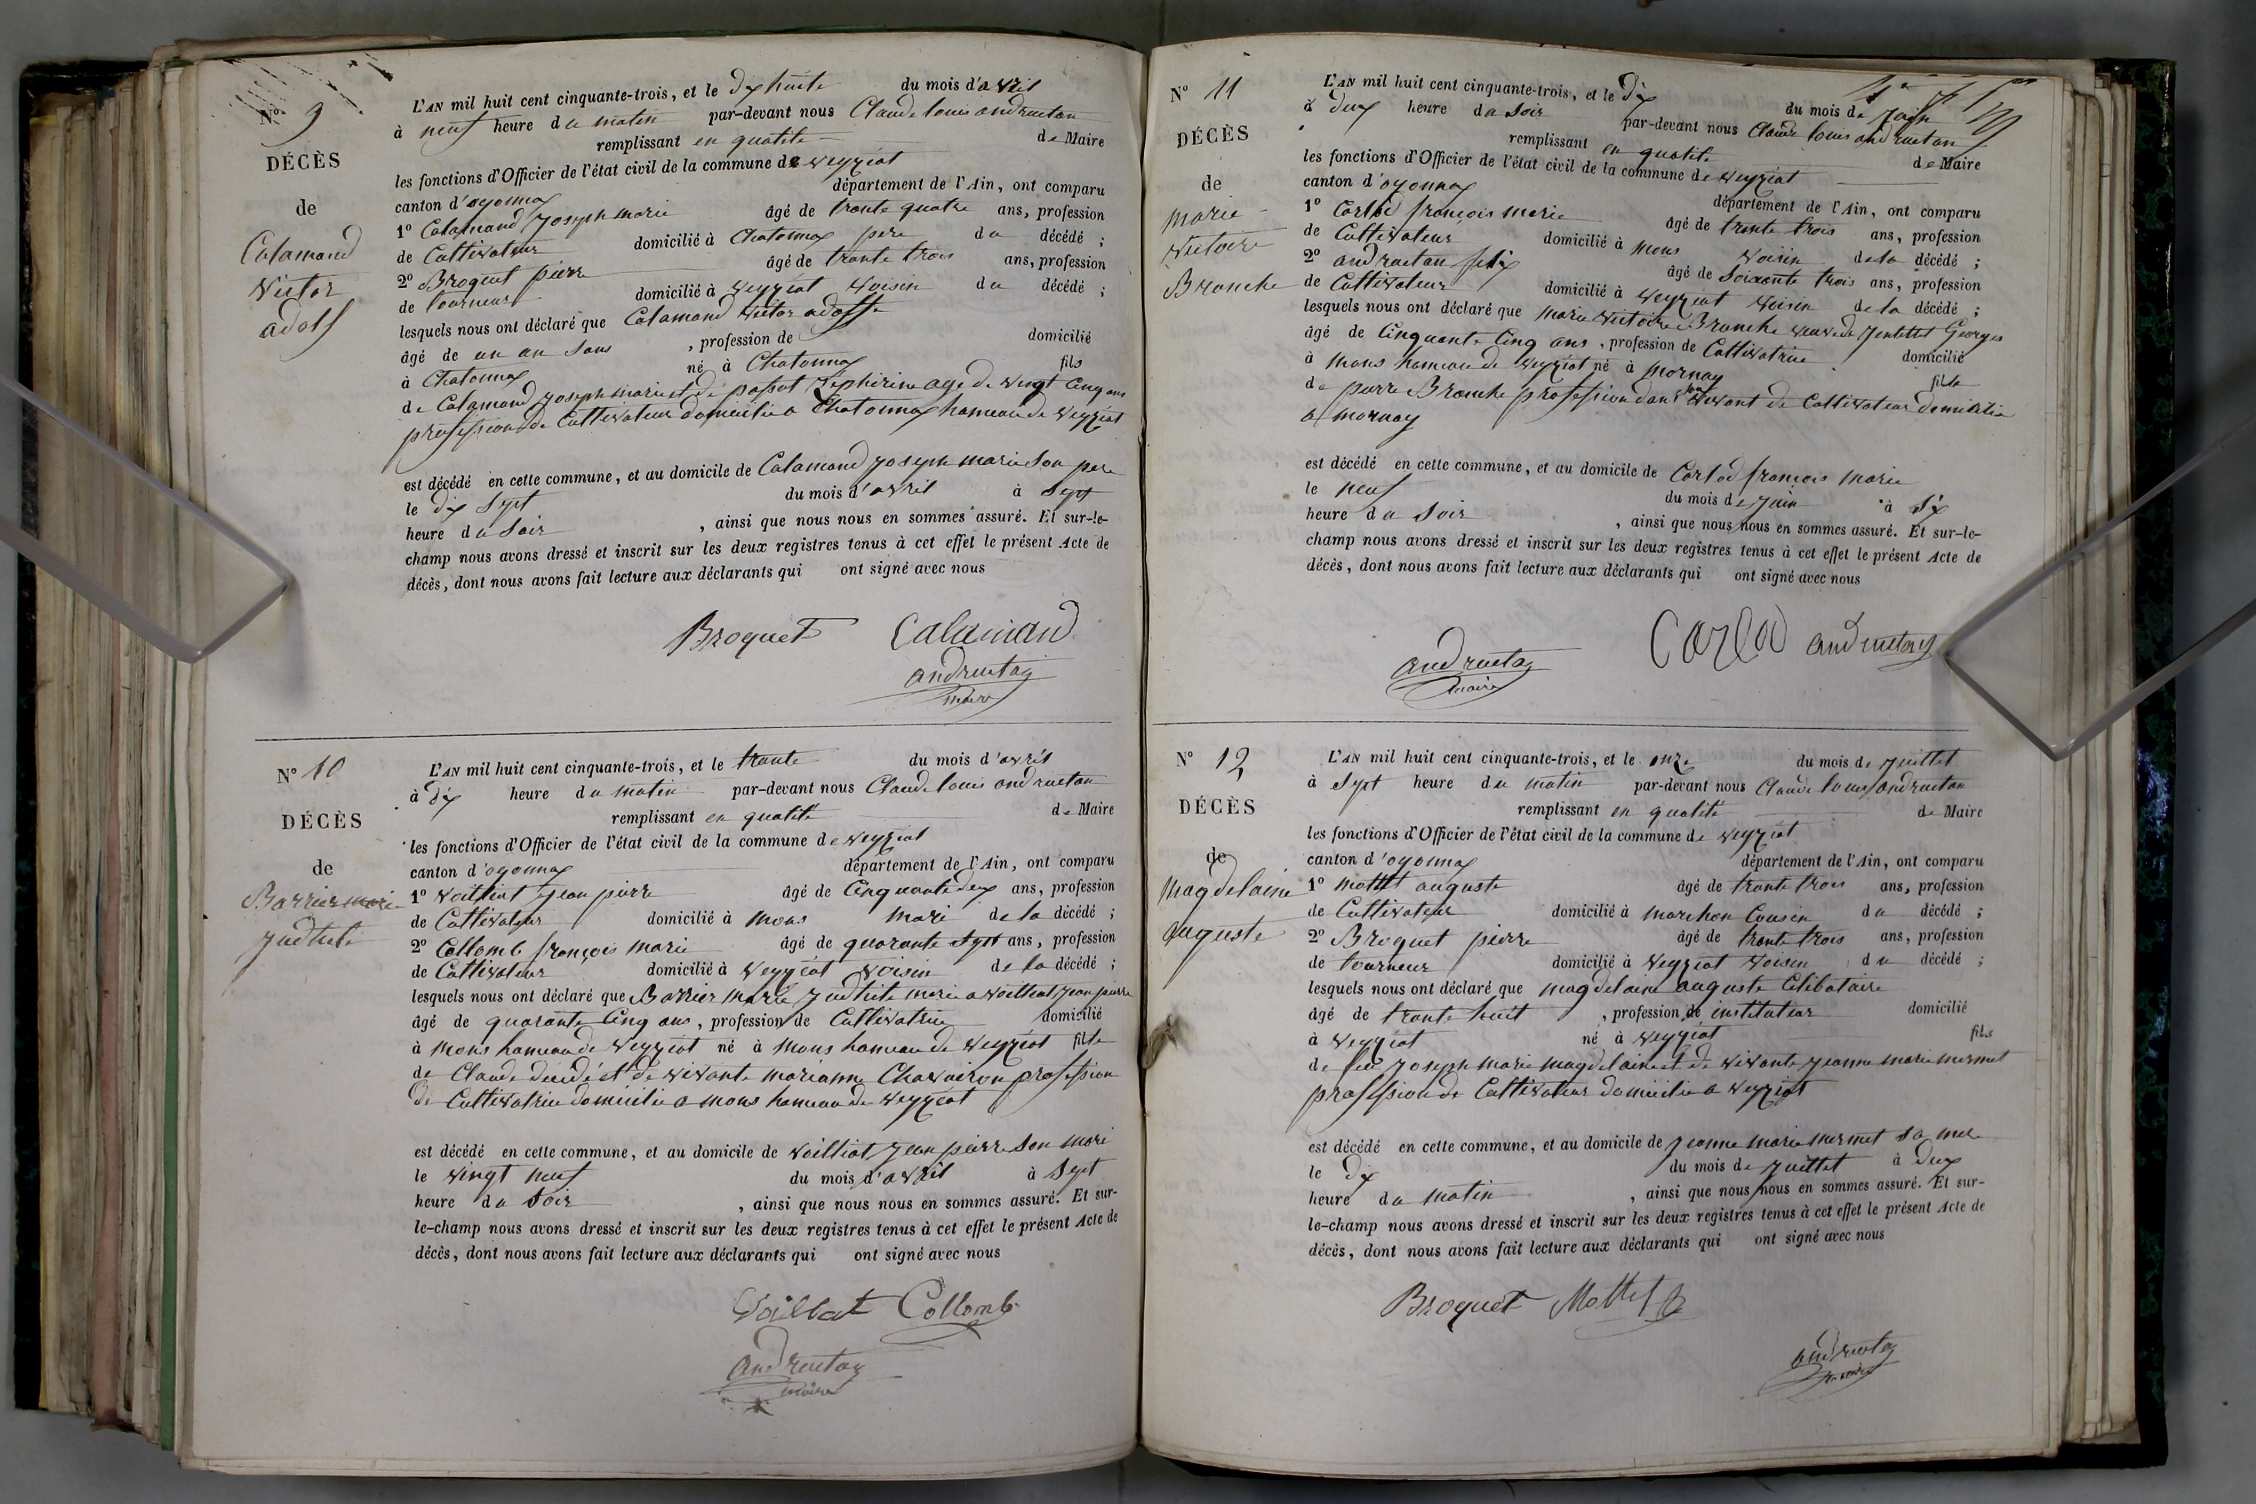 N° 9
DÉCÈS
de
Calamand
Victor
adolf
L'AN mil huit cent cinquante-trois, et le dix huite du mois d'avril
à neuf heure du matin par-devant nous Claude louis andruetan
remplissant en qualité de Maire
les fonctions d'Officier de l'état civil de la commune de veyziat
canton d'oyonnax département de l'Ain, ont comparu
1° Calamand joseph marie âgé de trante quatre ans, profession
de Cultivateur domicilié à Chatonnax pere du décédé ;
2° Broquet pierre âgé de trante trois ans, profession
de tourneur domicilié à veyziat voisin du décédé ;
lesquels nous ont déclaré que Calamand victor adolffe
âgé de un an sans , profession de domicilié
à Chatonnax né à Chatonnax fils
de Calamand joseph marie et de passot zéphirine age de vingt cinq ans
profession de Cultivateur domicilié a Chatonnax hameau de veyziat
est décédé en cette commune, et au domicile de Calamand joseph marie son pere
le dix sept du mois d'avril à sept
heure du soir , ainsi que nous nous en sommes assuré. Et sur-le-
champ nous avons dressé et inscrit sur les deux registres tenus à cet effet le présent Acte de
décès, dont nous avons fait lecture aux déclarants qui ont signé avec nous
Broquet Calamand
andruetan
maire
N° 10
DÉCÈS
de
Barrier marie
judhite
L'AN mil huit cent cinquante-trois, et le trante du mois d'avril
à dix heure du matin par-devant nous Claude louis andruetan
remplissant en qualité de Maire
les fonctions d'Officier de l'état civil de la commune de veyziat
canton d'oyonnax département de l'Ain, ont comparu
1° voilliat jean pierre âgé de Cinquante dex ans, profession
de Cultivateur domicilié à mons mari de la décédé ;
2° Collomb françois marie âgé de quarante sept ans, profession
de Cultivateur domicilié à veyziat voisin de la décédé ;
lesquels nous ont déclaré que Barrier marie judhite marie a voilliat jean pierre
âgé de quarante Cinq ans, profession de Cultivatrice domicilié
à mons hameau de veyziat né à mons hameau de veyziat fille
de Claude decédé et de vivante marianne Chavairon profession
de Cultivatrice domicilié a mons hameau de veyziat
est décédé en cette commune, et au domicile de voilliat jean pierre son mari
le vingt neuf du mois d'avril à sept
heure du soir , ainsi que nous nous en sommes assuré. Et sur-
le-champ nous avons dressé et inscrit sur les deux registres tenus à cet effet le présent Acte de
décès, dont nous avons fait lecture aux déclarants qui ont signé avec nous
Voilliat Collomb
andruetan
maire
N° 11
DÉCÈS
de
marie
victoire
Branche
L'AN mil huit cent cinquante-trois, et le dix du mois de juin
à dux heure du soir par-devant nous Claude louis andruetan
remplissant en qualité de Maire
les fonctions d'Officier de l'état civil de la commune de veyziat
canton d'oyonnax département de l'Ain, ont comparu
1° Carlod françois marie âgé de trante trois ans, profession
de Cultivateur domicilié à mons voisin de la décédé ;
2° andruetan felix âgé de soixante trois ans, profession
de Cultivateur domicilié à veyziat voisin de la décédé ;
lesquels nous ont déclaré que marie victoire Branche veuve de jentettet Georges
âgé de Cinquante Cinq ans, profession de Cultivatrice domicilié
à mons hameau de veyziat né à mornay fille
de pierre Branche profession dans son vivant de Cultivateur domicilié
a mornay
est décédé en cette commune, et au domicile de Carlod françois marie
le neuf du mois de juin à six
heure du soir , ainsi que nous nous en sommes assuré. Et sur-le-
champ nous avons dressé et inscrit sur les deux registres tenus à cet effet le présent Acte de
décès, dont nous avons fait lecture aux déclarants qui ont signé avec nous
andruetan Carlod andruetan
maire
N° 12
DÉCÈS
de
magdelaine
auguste
L'AN mil huit cent cinquante-trois, et le onze du mois de juillet
à sept heure du matin par-devant nous Claude louis andruetan
remplissant en qualité de Maire
les fonctions d'Officier de l'état civil de la commune de veyziat
canton d'oyonnax département de l'Ain, ont comparu
1° mottet auguste âgé de trante trois ans, profession
de Cultivateur domicilié à marchon Cousin du décédé ;
2° Broquet pierre âgé de trante trois ans, profession
de tourneur domicilié à veyziat voisin du décédé ;
lesquels nous ont déclaré que magdelaine auguste Célibataire
âgé de trante huit , profession de instituteur domicilié
à veyziat né à veyziat fils
de feu joseph marie magdelaine et de vivante jeanne marie mermet
profession de Cultivateur domicilié a veyziat
est décédé en cette commune, et au domicile de jeanne marie mermet sa mere
le dix du mois de juillet à dux
heure du matin , ainsi que nous nous en sommes assuré. Et sur-
le-champ nous avons dressé et inscrit sur les deux registres tenus à cet effet le présent Acte de
décès, dont nous avons fait lecture aux déclarants qui ont signé avec nous
Broquet Mottet
andruetan
maire